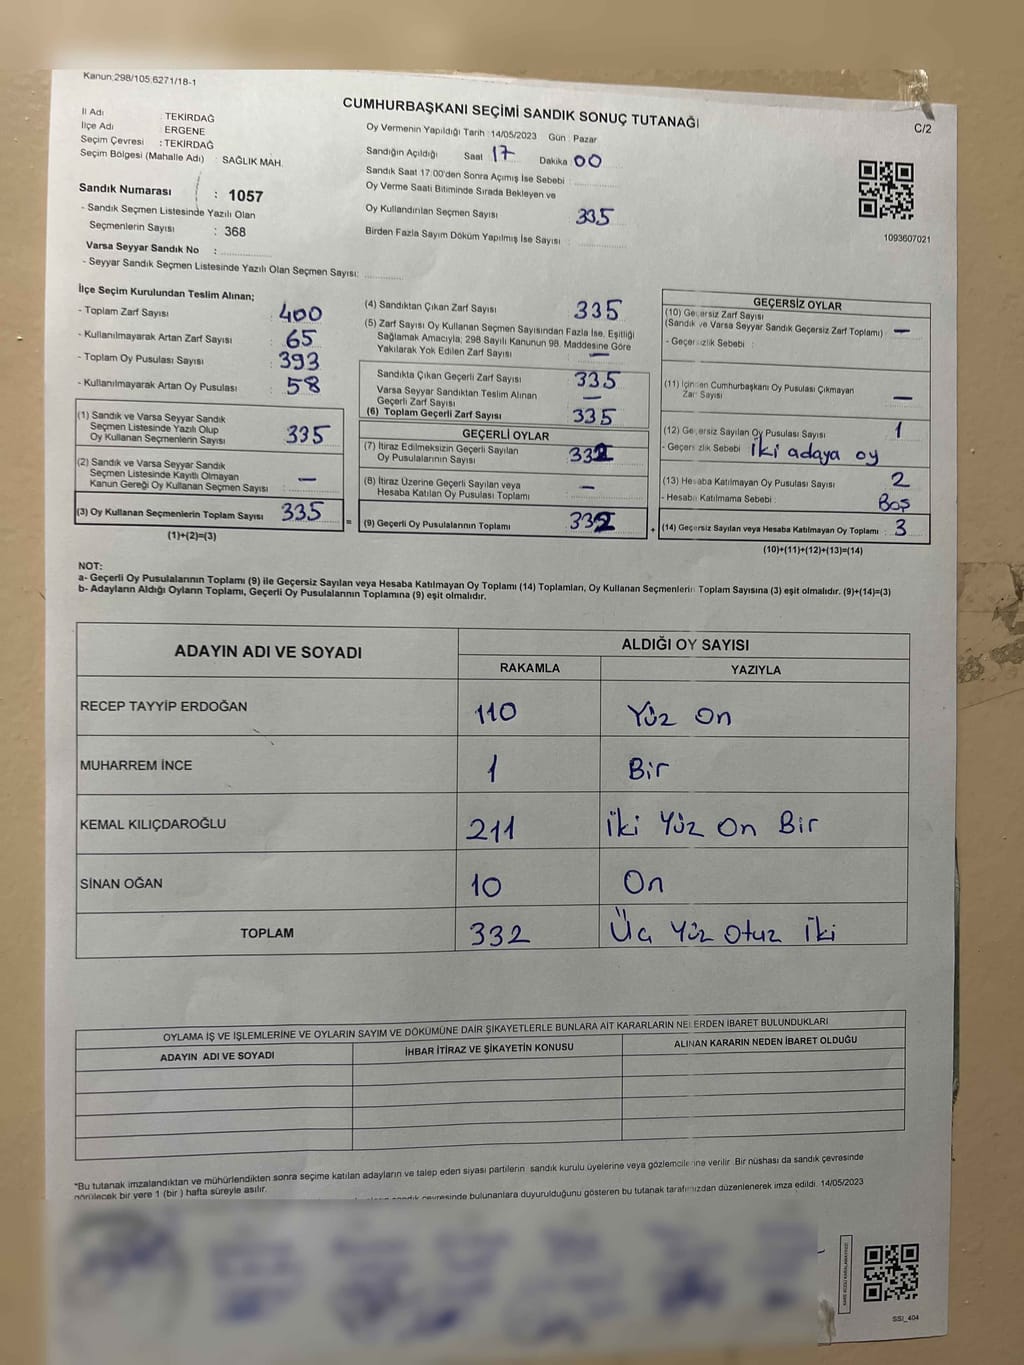 Kanun:298/105;6271/18-1
CUMHURBAŞKANI SEÇİMİ SANDIK SONUÇ TUTANAĞI
C/2
İl Adı : TEKİRDAĞ
İlçe Adı : ERGENE
Seçim Çevresi : TEKİRDAĞ
Seçim Bölgesi (Mahalle Adı) : SAĞLIK MAH.
Sandık Numarası : 1057
- Sandık Seçmen Listesinde Yazılı Olan
Seçmenlerin Sayısı : 368
Varsa Seyyar Sandık No :
- Seyyar Sandık Seçmen Listesinde Yazılı Olan Seçmen Sayısı:
Oy Vermenin Yapıldığı Tarih : 14/05/2023 Gün : Pazar
Sandığın Açıldığı Saat 17 Dakika 00
Sandık Saat 17:00'den Sonra Açımış İse Sebebi :
Oy Verme Saati Bitiminde Sırada Bekleyen ve
Oy Kullandırılan Seçmen Sayısı 335
Birden Fazla Sayım Döküm Yapılmış İse Sayısı :
1093607021
İlçe Seçim Kurulundan Teslim Alınan;
- Toplam Zarf Sayısı : 400
- Kullanılmayarak Artan Zarf Sayısı : 65
- Toplam Oy Pusulası Sayısı : 393
- Kullanılmayarak Artan Oy Pusulası : 58
(1) Sandık ve Varsa Seyyar Sandık
Seçmen Listesinde Yazılı Olup
Oy Kullanan Seçmenlerin Sayısı 335
(2) Sandık ve Varsa Seyyar Sandık
Seçmen Listesinde Kayıtlı Olmayan
Kanun Gereği Oy Kullanan Seçmen Sayısı : —
(3) Oy Kullanan Seçmenlerin Toplam Sayısı 335
(1)+(2)=(3)
=
(4) Sandıktan Çıkan Zarf Sayısı 335
(5) Zarf Sayısı Oy Kullanan Seçmen Sayısından Fazla İse, Eşitliği
Sağlamak Amacıyla; 298 Sayılı Kanunun 98. Maddesine Göre
Yakılarak Yok Edilen Zarf Sayısı —
Sandıkta Çıkan Geçerli Zarf Sayısı 335
Varsa Seyyar Sandıktan Teslim Alınan
Geçerli Zarf Sayısı —
(6) Toplam Geçerli Zarf Sayısı 335
GEÇERLİ OYLAR
(7) İtiraz Edilmeksizin Geçerli Sayılan
Oy Pusulalarının Sayısı 332
(8) İtiraz Üzerine Geçerli Sayılan veya
Hesaba Katılan Oy Pusulası Toplamı —
(9) Geçerli Oy Pusulalarının Toplamı 332
+
GEÇERSİZ OYLAR
(10) Geçersiz Zarf Sayısı
(Sandık ve Varsa Seyyar Sandık Geçersiz Zarf Toplamı) —
- Geçersizlik Sebebi :
(11) İçinden Cumhurbaşkanı Oy Pusulası Çıkmayan
Zarf Sayısı —
(12) Geçersiz Sayılan Oy Pusulası Sayısı 1
- Geçersizlik Sebebi iki adaya oy
(13) Hesaba Katılmayan Oy Pusulası Sayısı 2
- Hesaba Katılmama Sebebi : Boş
(14) Geçersiz Sayılan veya Hesaba Katılmayan Oy Toplamı 3
(10)+(11)+(12)+(13)=(14)
NOT:
a- Geçerli Oy Pusulalarının Toplamı (9) ile Geçersiz Sayılan veya Hesaba Katılmayan Oy Toplamı (14) Toplamları, Oy Kullanan Seçmenlerin Toplam Sayısına (3) eşit olmalıdır. (9)+(14)=(3)
b- Adayların Aldığı Oyların Toplamı, Geçerli Oy Pusulalarının Toplamına (9) eşit olmalıdır.
ADAYIN ADI VE SOYADI
ALDIĞI OY SAYISI
RAKAMLA YAZIYLA
RECEP TAYYİP ERDOĞAN 110 Yüz On
MUHARREM İNCE 1 Bir
KEMAL KILIÇDAROĞLU 211 İki Yüz On Bir
SİNAN OĞAN 10 On
TOPLAM 332 Üç Yüz Otuz İki
OYLAMA İŞ VE İŞLEMLERİNE VE OYLARIN SAYIM VE DÖKÜMÜNE DAİR ŞİKAYETLERLE BUNLARA AİT KARARLARIN NELERDEN İBARET BULUNDUKLARI
ADAYIN ADI VE SOYADI İHBAR İTİRAZ VE ŞİKAYETİN KONUSU ALINAN KARARIN NEDEN İBARET OLDUĞU
*Bu tutanak imzalandıktan ve mühürlendikten sonra seçime katılan adayların ve talep eden siyasi partilerin sandık kurulu üyelerine veya gözlemcilerine verilir. Bir nüshası da sandık çevresinde
görülecek bir yere 1 (bir ) hafta süreyle asılır.
sandık çevresinde bulunanlara duyurulduğunu gösteren bu tutanak tarafımızdan düzenlenerek imza edildi. 14/05/2023
SSİ_404